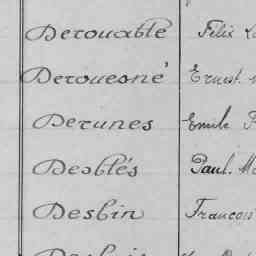 Derouable Félix
Derouesné Ernest
Derunes Emile
Desblés Paul
Desbin François